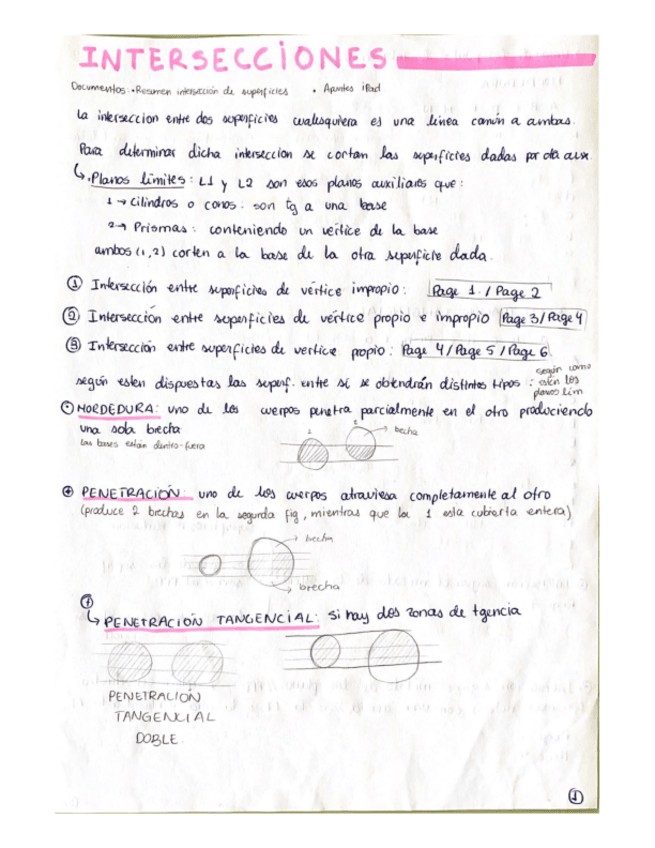 INTERSECCIONES
Documentos: • Resumen intersección de superficies • Apuntes iPad
La interseccion entre dos superficies cualesquiera es una linea común a ambas.
Para determinar dicha interseccion se cortan las superficies dadas por otra aux.
↳ Planos limites: L1 y L2 son esos planos auxiliares que:
1 → Cilindros o conos: son tg a una base
2 → Prismas: conteniendo un vértice de la base
ambos (1,2) corten a la base de la otra superficie dada.
① Intersección entre superficies de vértice impropio: Page 1. / Page 2
② Intersección entre superficies de vértice propio e impropio Page 3 / Page 4
③ Intersección entre superficies de vertice propio: Page 4 / Page 5 / Page 6
según esten dispuestas las superf. entre sí se obtendrán distintos tipos: según como estén los planos lim
MORDEDURA: uno de los cuerpos penetra parcialmente en el otro produciendo
una sola brecha
las bases están dentro-fuera
1
2
brecha
PENETRACIÓN: uno de los cuerpos atraviesa completamente al otro
(produce 2 brechas en la segunda fig, mientras que la 1 esta cubierta entera)
brecha
brecha
↳ PENETRACIÓN TANGENCIAL: si hay dos zonas de tgencia
PENETRACIÓN
TANGENCIAL
DOBLE
①